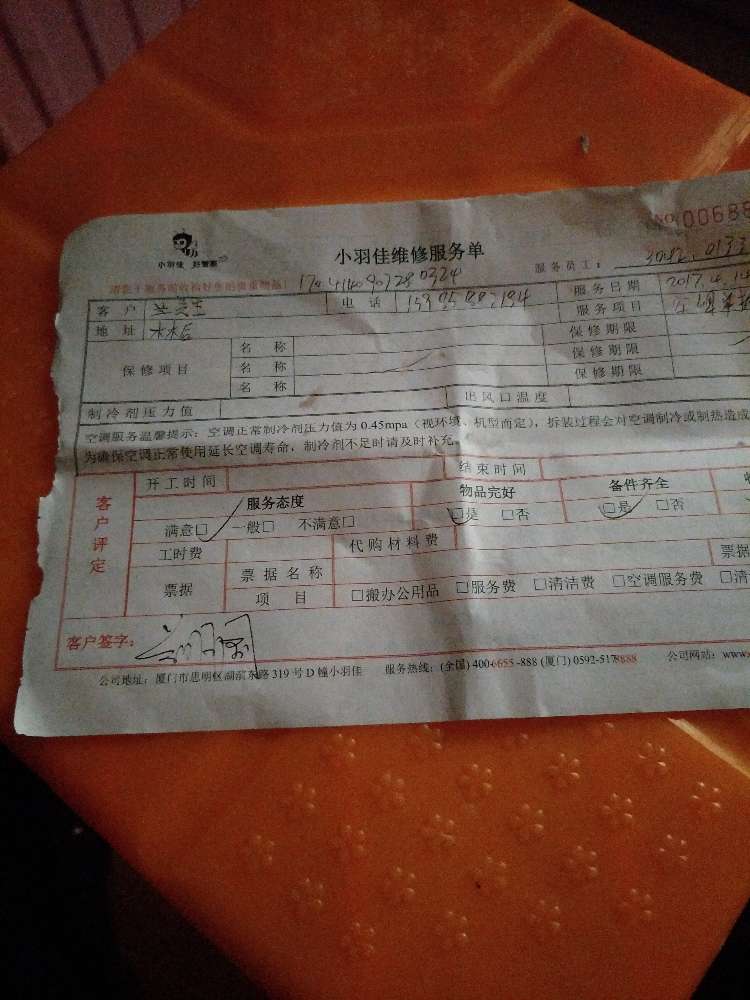 NO. 00688
小羽佳 好管家
小羽佳维修服务单
服务员工： 3082 0133
请在下服务前收拾好您的贵重物品！
客户 电话 服务日期 2017.4.1
地址 服务项目
保修项目 名称 保修期限
名称 保修期限
名称 保修期限
制冷剂压力值 出风口温度
空调服务温馨提示：空调正常制冷剂压力值为 0.45mpa（视环境、机型而定），拆装过程会对空调制冷或制热造成
为确保空调正常使用延长空调寿命，制冷剂不足时请及时补充。
开工时间 结束时间
客户评定
服务态度 物品完好 备件齐全
满意□ 一般□ 不满意□ □是 □否 □是 □否
工时费 代购材料费
票据 票据名称 票据
项目 □搬办公用品 □服务费 □清洁费 □空调服务费 □清
客户签字：
公司地址：厦门市思明区湖滨东路 319 号 D 幢小羽佳 服务热线：(全国) 400-6655-888 (厦门) 0592-5178888 公司网站：www.